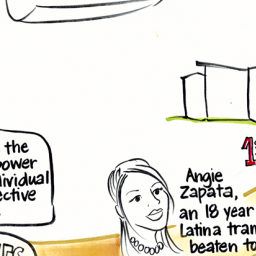 the
power
dividual
ective
Angie
Zapata,
an 18 year
Latina tran
beaten to
1